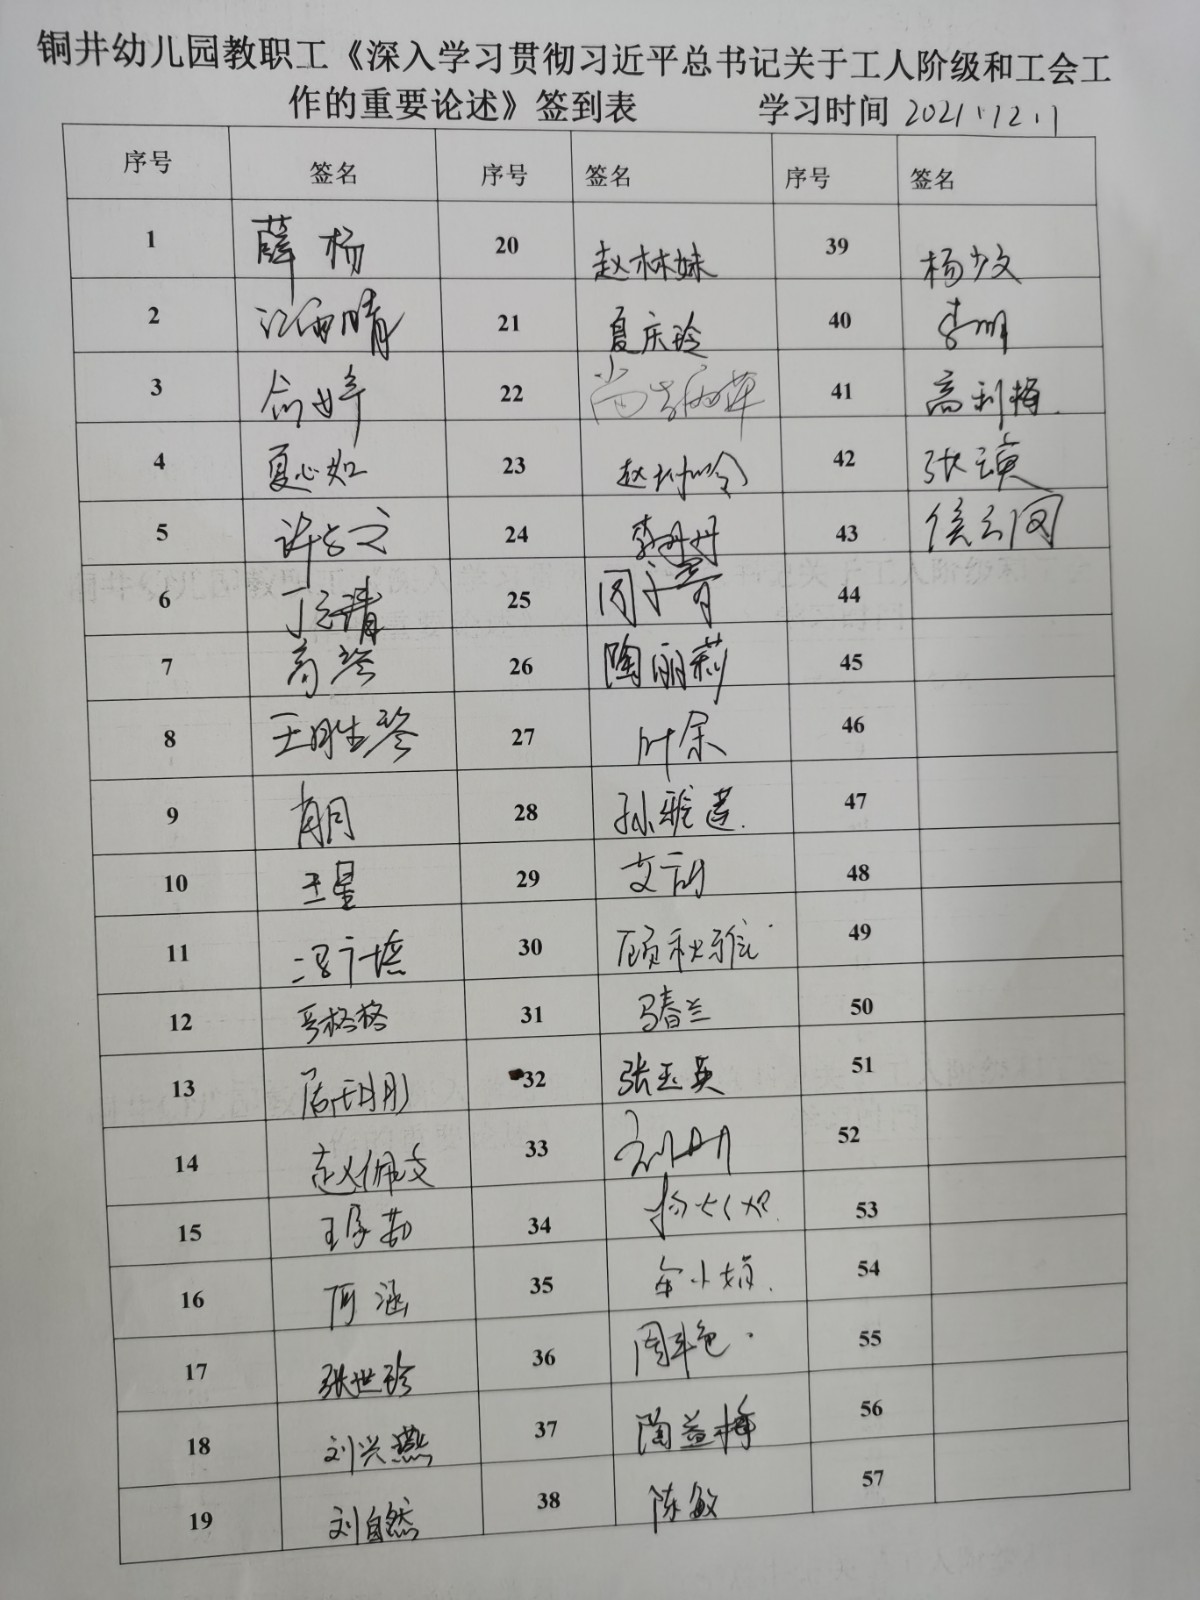 铜井幼儿园教职工《深入学习贯彻习近平总书记关于工人阶级和工会工
作的重要论述》签到表 学习时间 2021.12.1
序号 签名 序号 签名 序号 签名
1 薛杨 20 赵林妹 39 杨少文
2 江雨晴 21 夏庆玲 40 李明
3 俞婷 22 尚 41 高利梅
4 夏心如 23 赵 42 张瑛
5 许 24 李丹丹 43 侯
6 丁 25 周 44
7 高琴 26 陶丽莉 45
8 王胜琴 27 叶余 46
9 肖月 28 孙雅莲 47
10 王星 29 艾 48
11 冯 30 顾秋雅 49
12 格格 31 马春兰 50
13 32 张玉英 51
14 赵佩文 33 52
15 王 34 杨 53
16 何涵 35 余小娟 54
17 张世珍 36 周 55
18 刘兴燕 37 陶益梅 56
19 刘自然 38 陈敏 57